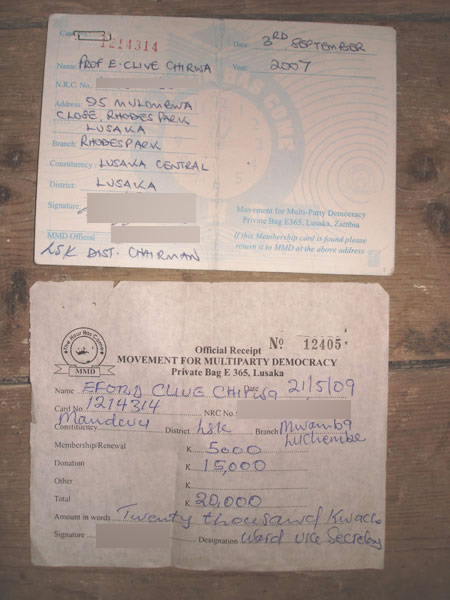 Card 1214314 Date: 3RD SEPTEMBER
Name: PROF E. CLIVE CHIRWA Year: 2007
N.R.C. No.
Address: 95 MULOMBWA
CLOSE, RHODES PARK
LUSAKA
Branch: RHODESPARK
Constituency: LUSAKA CENTRAL
District: LUSAKA
Signature
Movement for Multi-Party Democracy
Private Bag E365, Lusaka, Zambia
MMD Official
If this Membership card is found please
return it to MMD at the above address
LSK DIST. CHAIRMAN
The Hour Has Come
MMD
Official Receipt No 12405
MOVEMENT FOR MULTIPARTY DEMOCRACY
Private Bag E 365, Lusaka
Name EFORD CLIVE CHIRWA Date 21/5/09
Card No. 1214314 NRC No.
Constituency Mandevu District LSK Branch Mwamba Luchembe
Membership/Renewal K 5000
Donation K 15,000
Other K
Total K 20,000
Amount in words Twenty thousand Kwacha
Signature Designation Ward vice Secretary